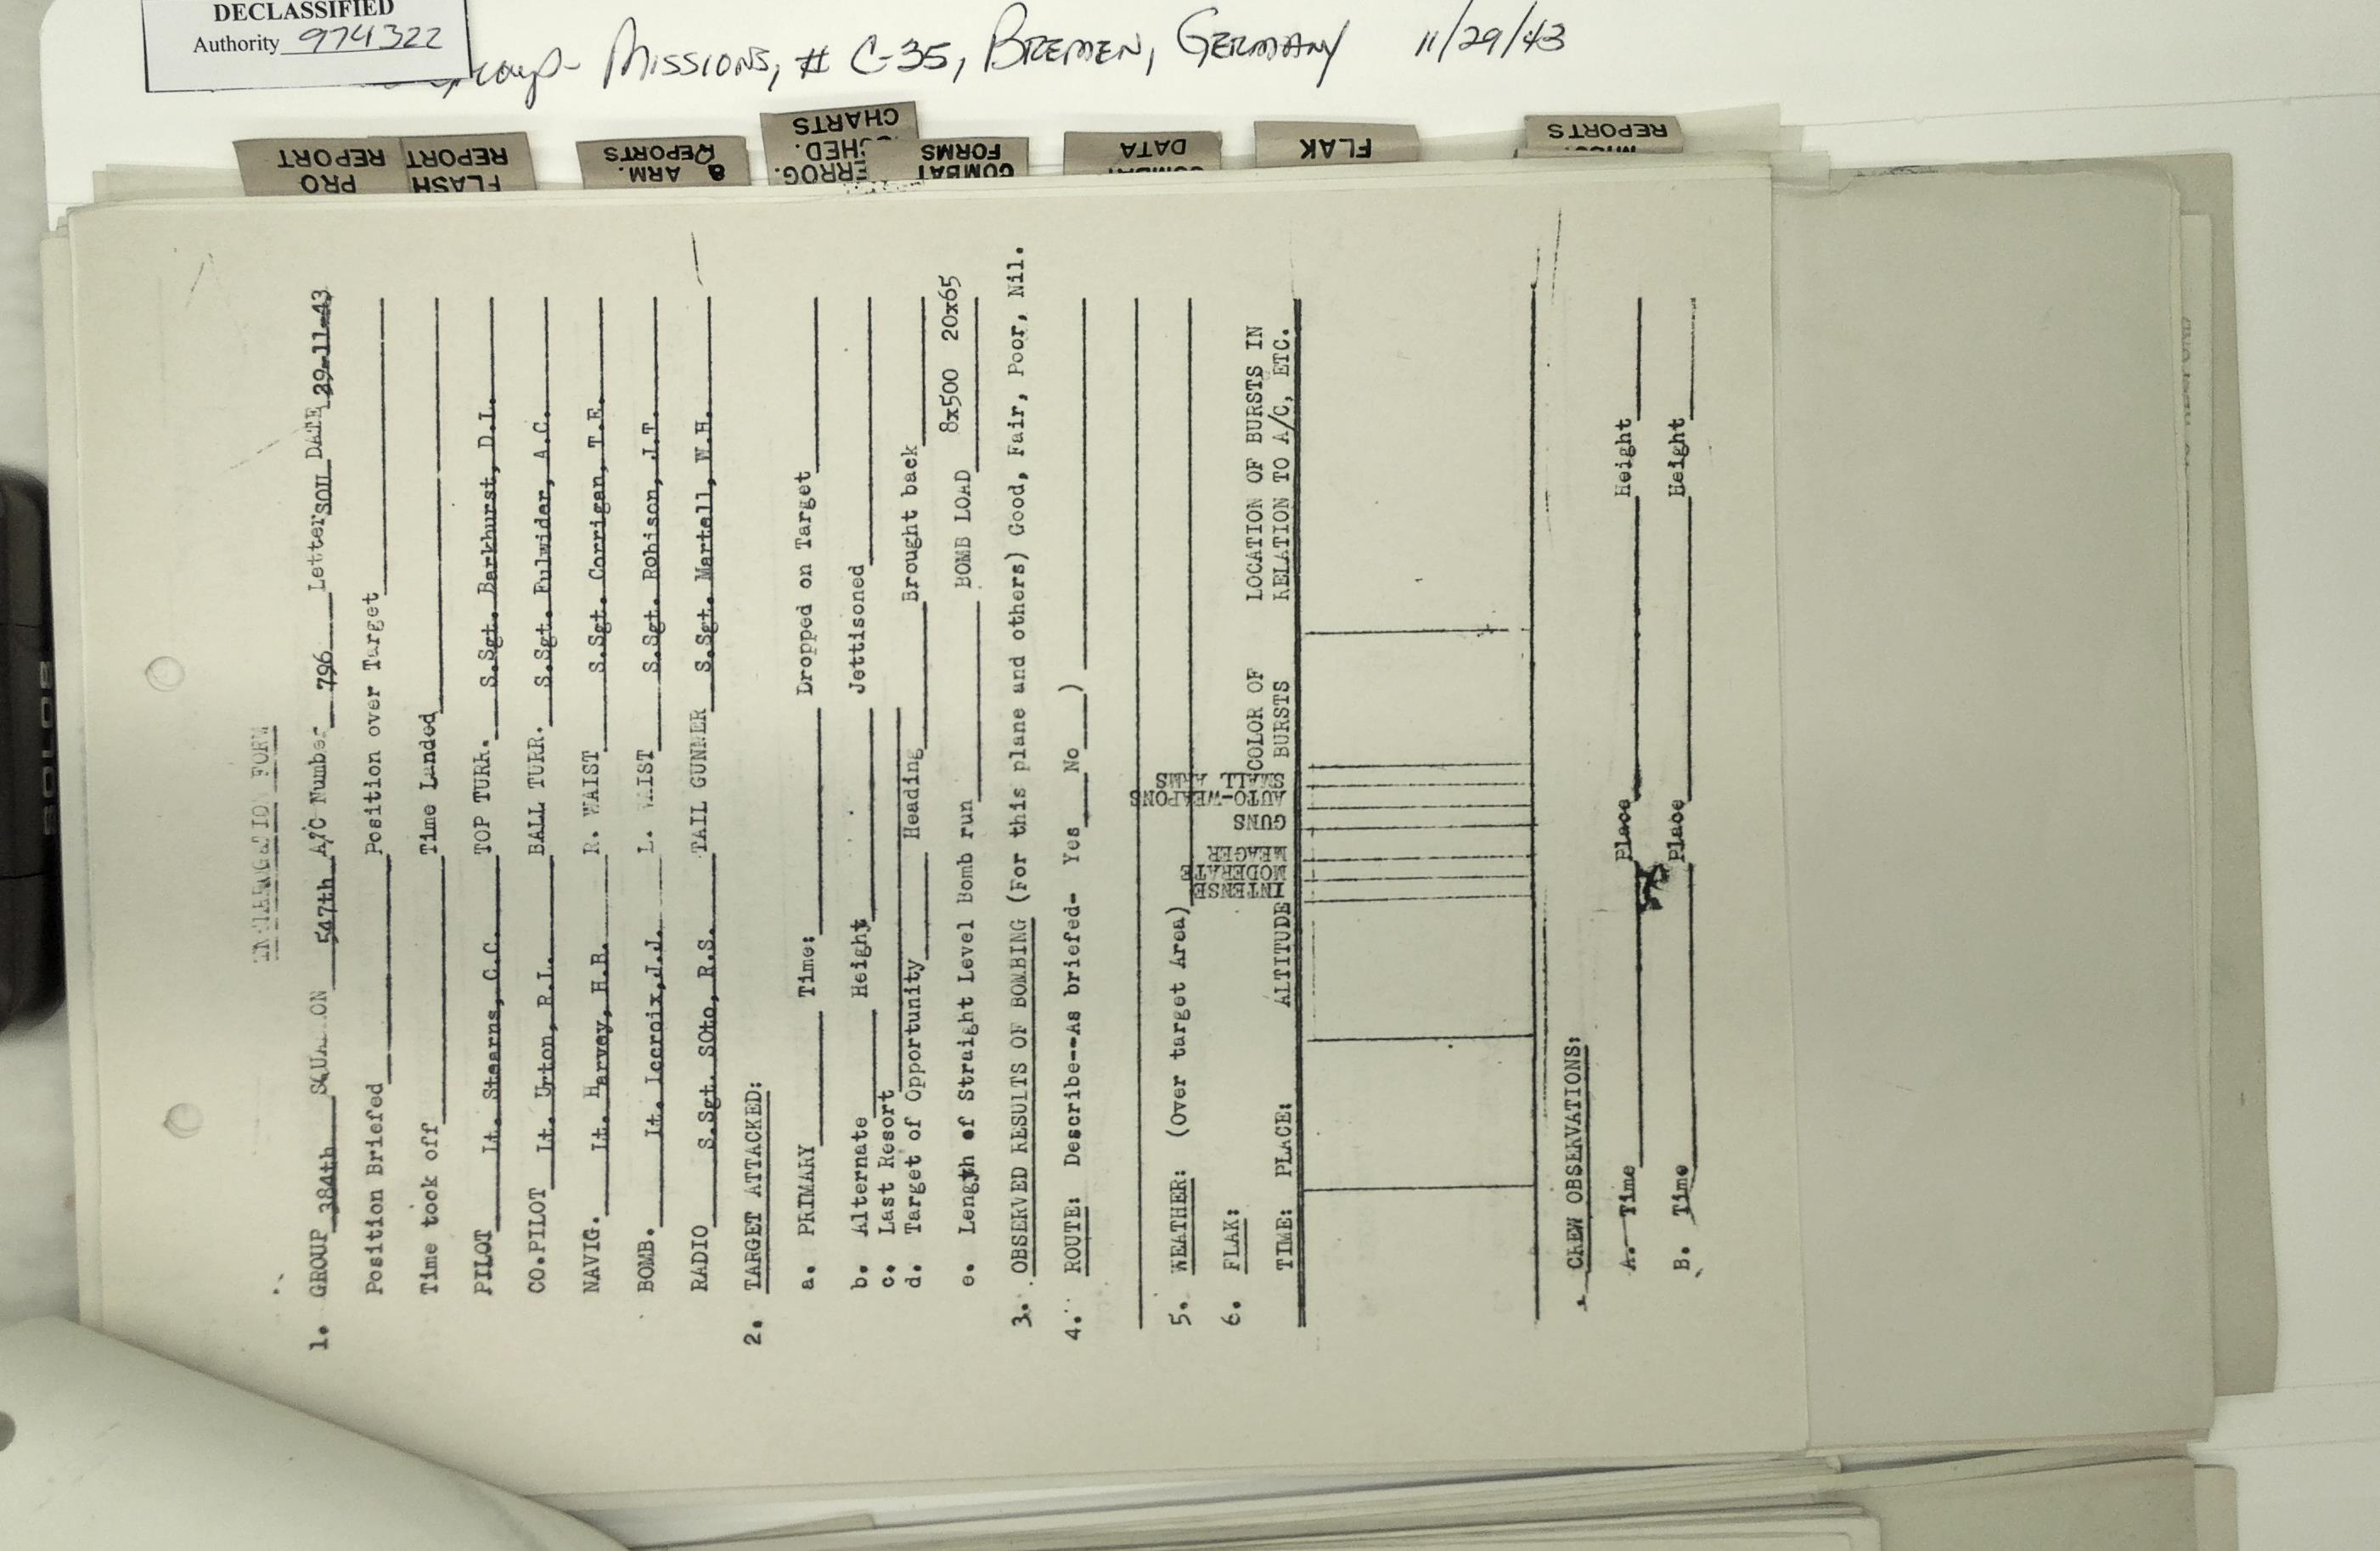 DECLASSIFIED
Authority 974322
Missions, # C-35, Bremen, Germany 11/29/43
PRO
REPORT
FLASH
REPORT
ARM.
REPORTS
CHARTS
COMBAT
FORMS
DATA
FLAK
REPORTS
INTERROGATION FORM
1. GROUP 384th SQUADRON 547th A/C Number 796 Letter SOU DATE 29-11-43
Position Briefed Position over Target
Time took off Time Landed
PILOT Lt. Stearns, C.C. TOP TURR. S.Sgt. Barkhurst, D.L.
CO.PILOT Lt. Urton, R.L. BALL TURR. S.Sgt. Fulwider, A.C.
NAVIG. Lt. Harvey, H.B. R. WAIST S.Sgt. Corrigan, T.E.
BOMB. Lt. Lecroix,J.J. L. WAIST S.Sgt. Robison, J.T.
RADIO S.Sgt. SOto, R.S. TAIL GUNNER S.Sgt. Martell, W.H.
2. TARGET ATTACKED:
a. PRIMARY Time: Dropped on Target
b. Alternate Height Jettisoned
c. Last Resort
d. Target of Opportunity Heading Brought back
e. Length of Straight Level Bomb run BOMB LOAD 8x500 20x65
3. OBSERVED RESULTS OF BOMBING (For this plane and others) Good, Fair, Poor, Nil.
4. ROUTE: Describe--As briefed- Yes No )
5. WEATHER: (Over target Area)
6. FLAK:
TIME: PLACE: ALTITUDE INTENSE MODERATE MEAGER GUNS AUTO-WEAPONS SMALL ARMS COLOR OF BURSTS LOCATION OF BURSTS IN RELATION TO A/C, ETC.
CREW OBSERVATIONS:
A. Time Place Height
B. Time Place Height